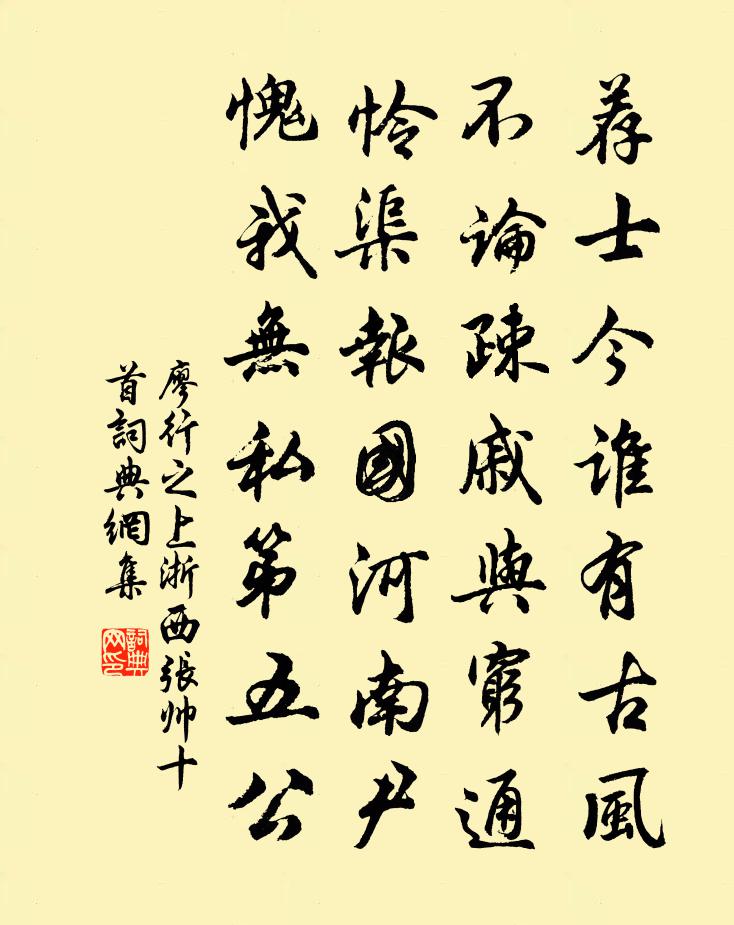 荐士今谁有古風
不論疎戚與窮通
怜渠報國河南尹
愧我無私第五公
廖行之上浙西張帅十
首詞典網集
詞典
网印